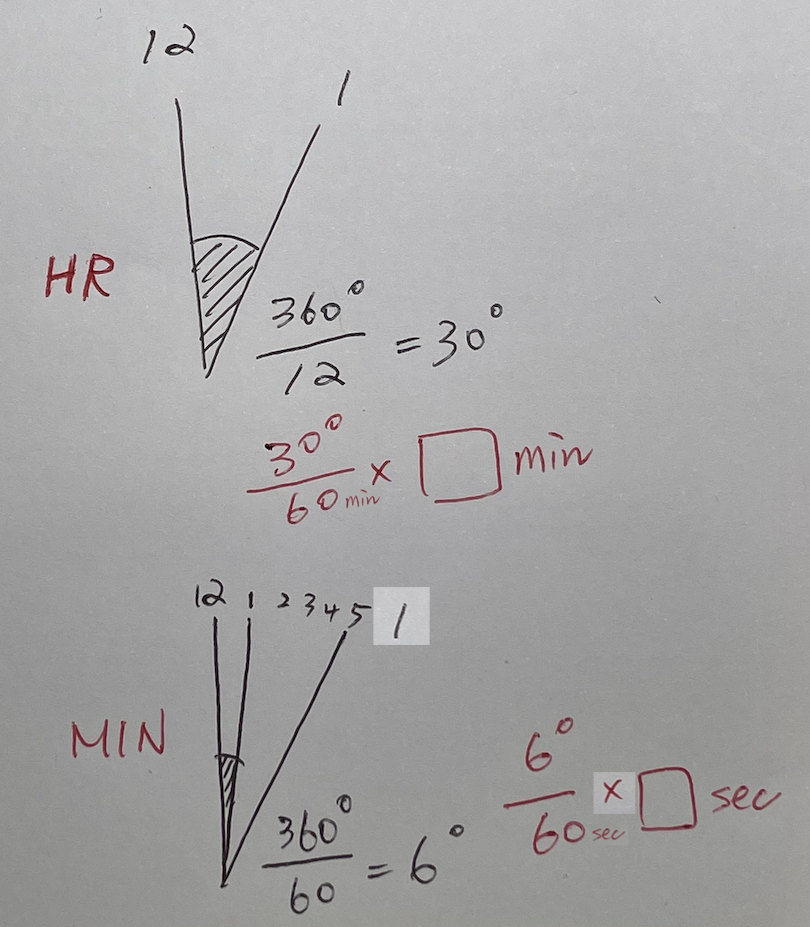 12
1
HR
360°
12
= 30°
30°
60 min
× □ min
12 1 2 3 4 5 1
MIN
360°
60
= 6°
6°
60 sec
× □ sec